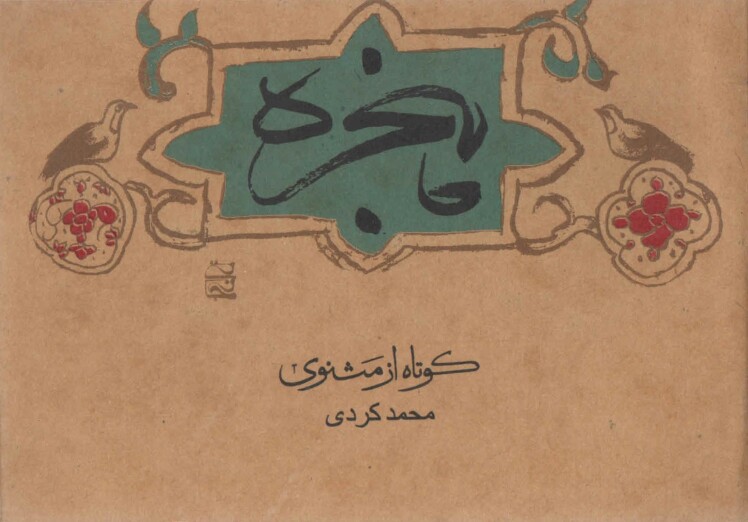 پنجره
کوتاه از مَثنوی
محمد کردی